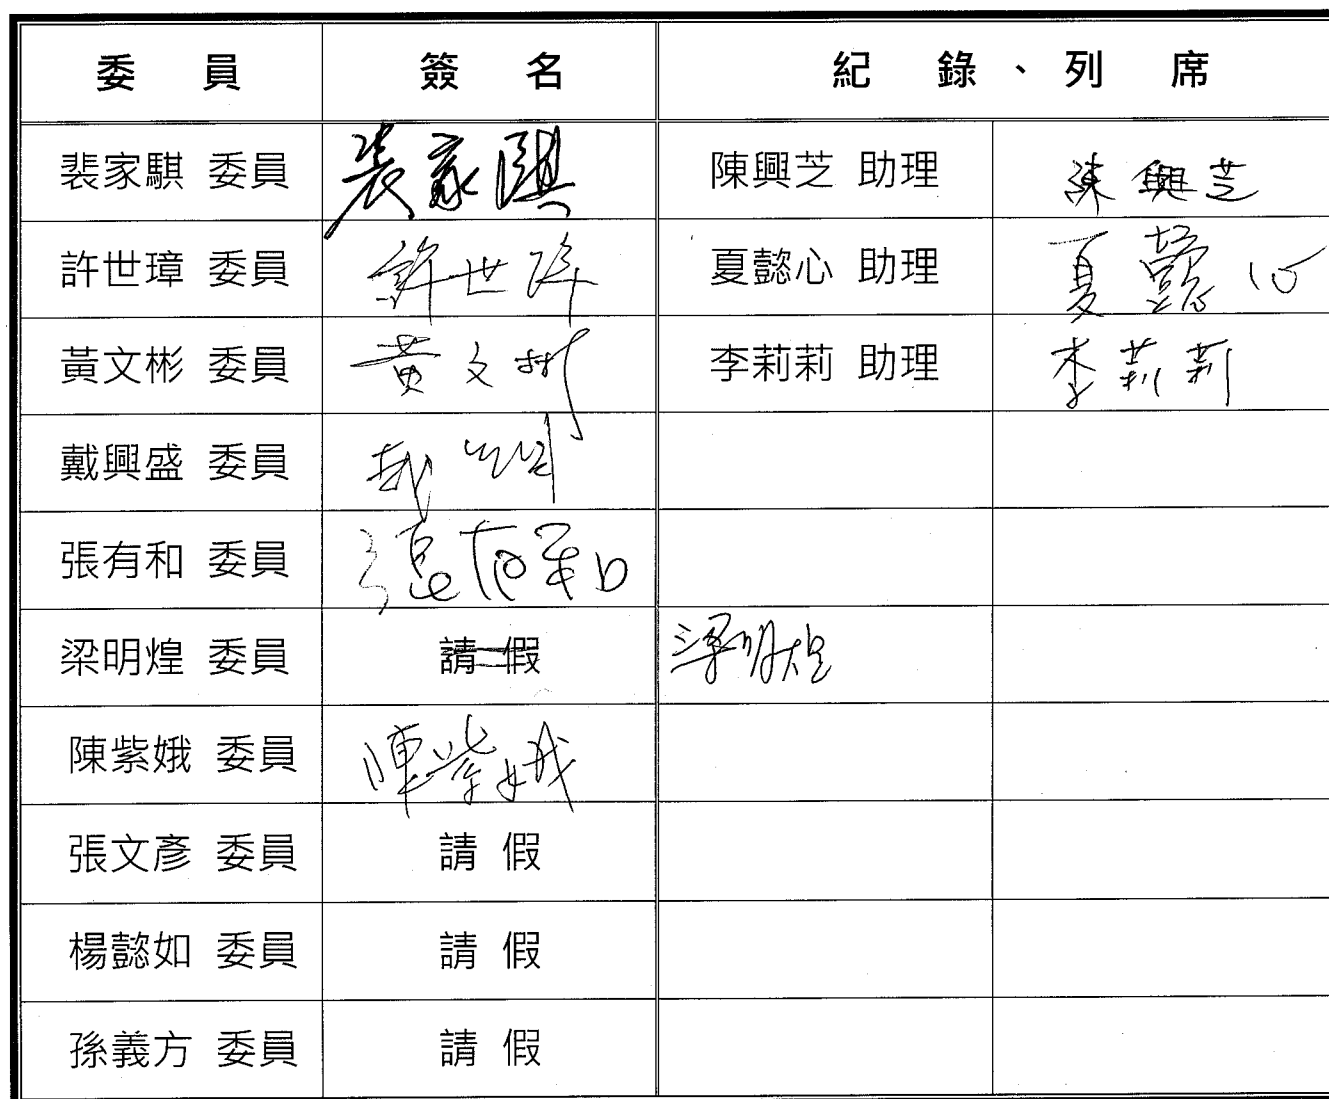 委員 簽名 紀錄、列席
裴家騏 委員 裴家騏 陳興芝 助理 陳興芝
許世璋 委員 許世璋 夏懿心 助理 夏懿心
黃文彬 委員 黃文彬 李莉莉 助理 李莉莉
戴興盛 委員
張有和 委員 張有和
梁明煌 委員 請假 梁明煌
陳紫娥 委員 陳紫娥
張文彥 委員 請假
楊懿如 委員 請假
孫義方 委員 請假